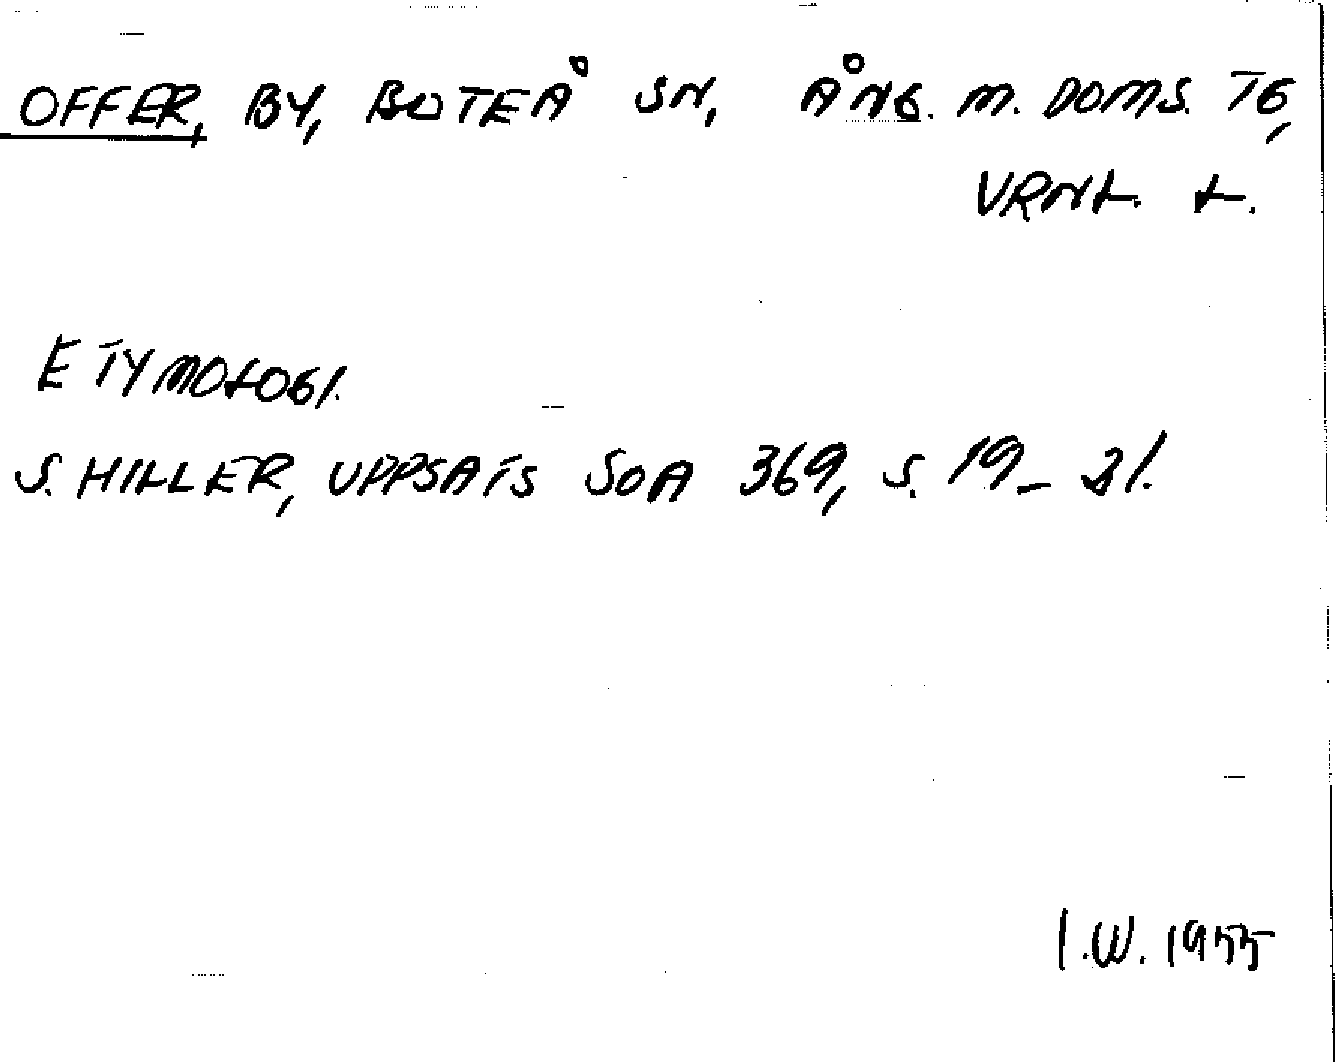 OFFER, BY, BOTEÅ SN, ÅNG. M. DOMS. TG,
VRNL. L.
ETYMOLOGI.
S. HILLER, UPPSATS SOA 369, S. 19-21.
I.W. 1955